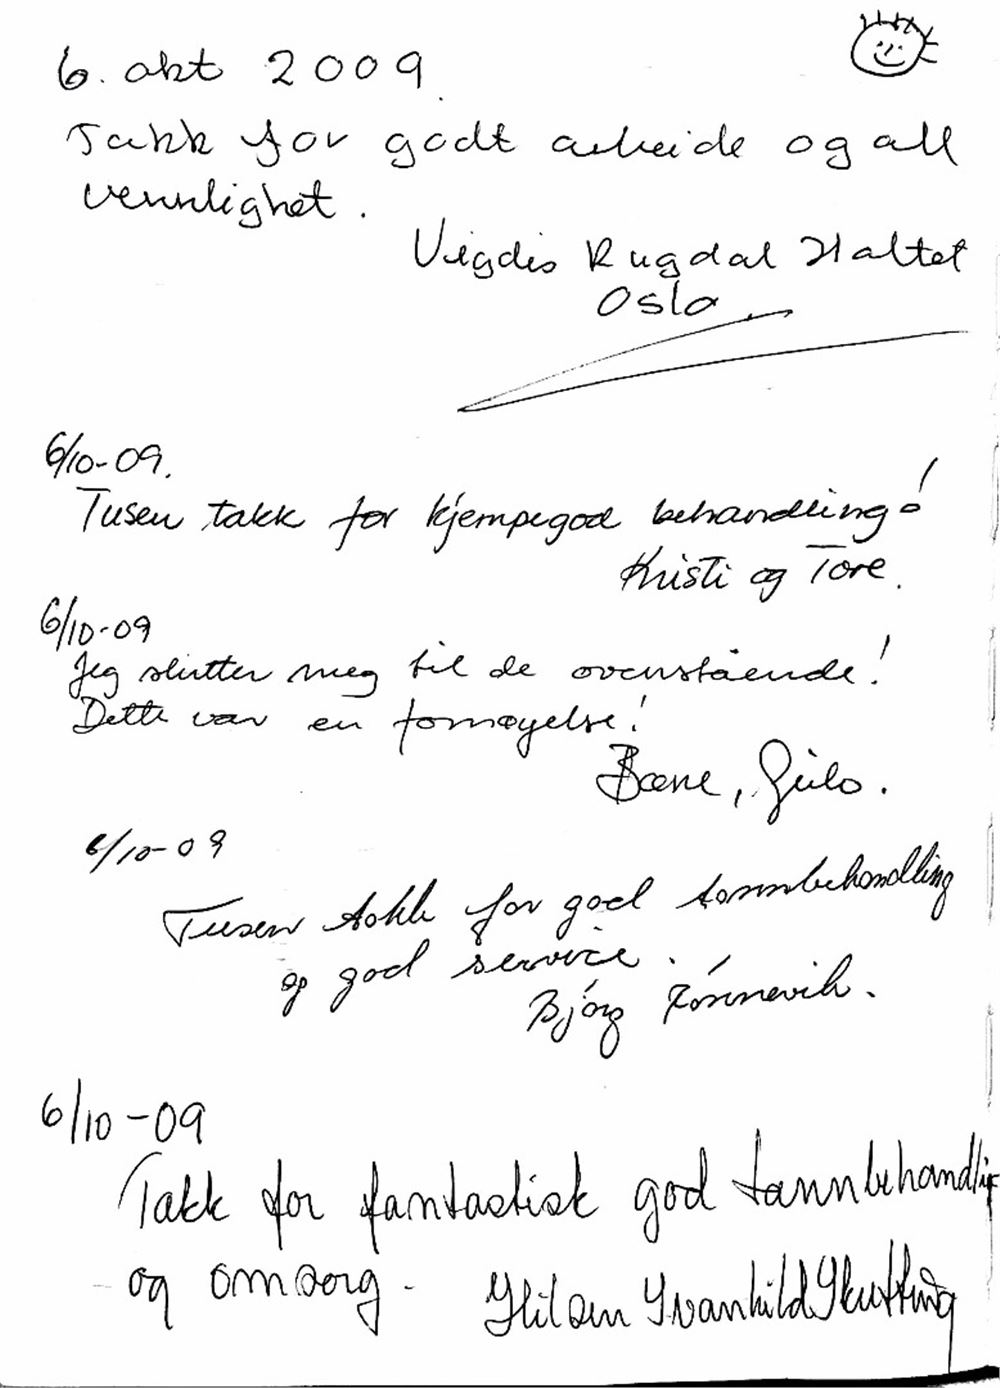 6. okt 2009
Takk for godt arbeide og all
vennlighet.
Vigdis Rugdal Haltet
Oslo
6/10-09.
Tusen takk for kjempegod behandling!
Kristi og Tore.
6/10-09
Jeg slutter meg til de ovenstående!
Dette var en fornøyelse!
Geilo.
6/10-09
Tusen takk for god tannbehandling
og god service.
Bjórg
6/10-09
Takk for fantastisk god tannbehandling
og omsorg.
Hilsen Svanhild Skutting